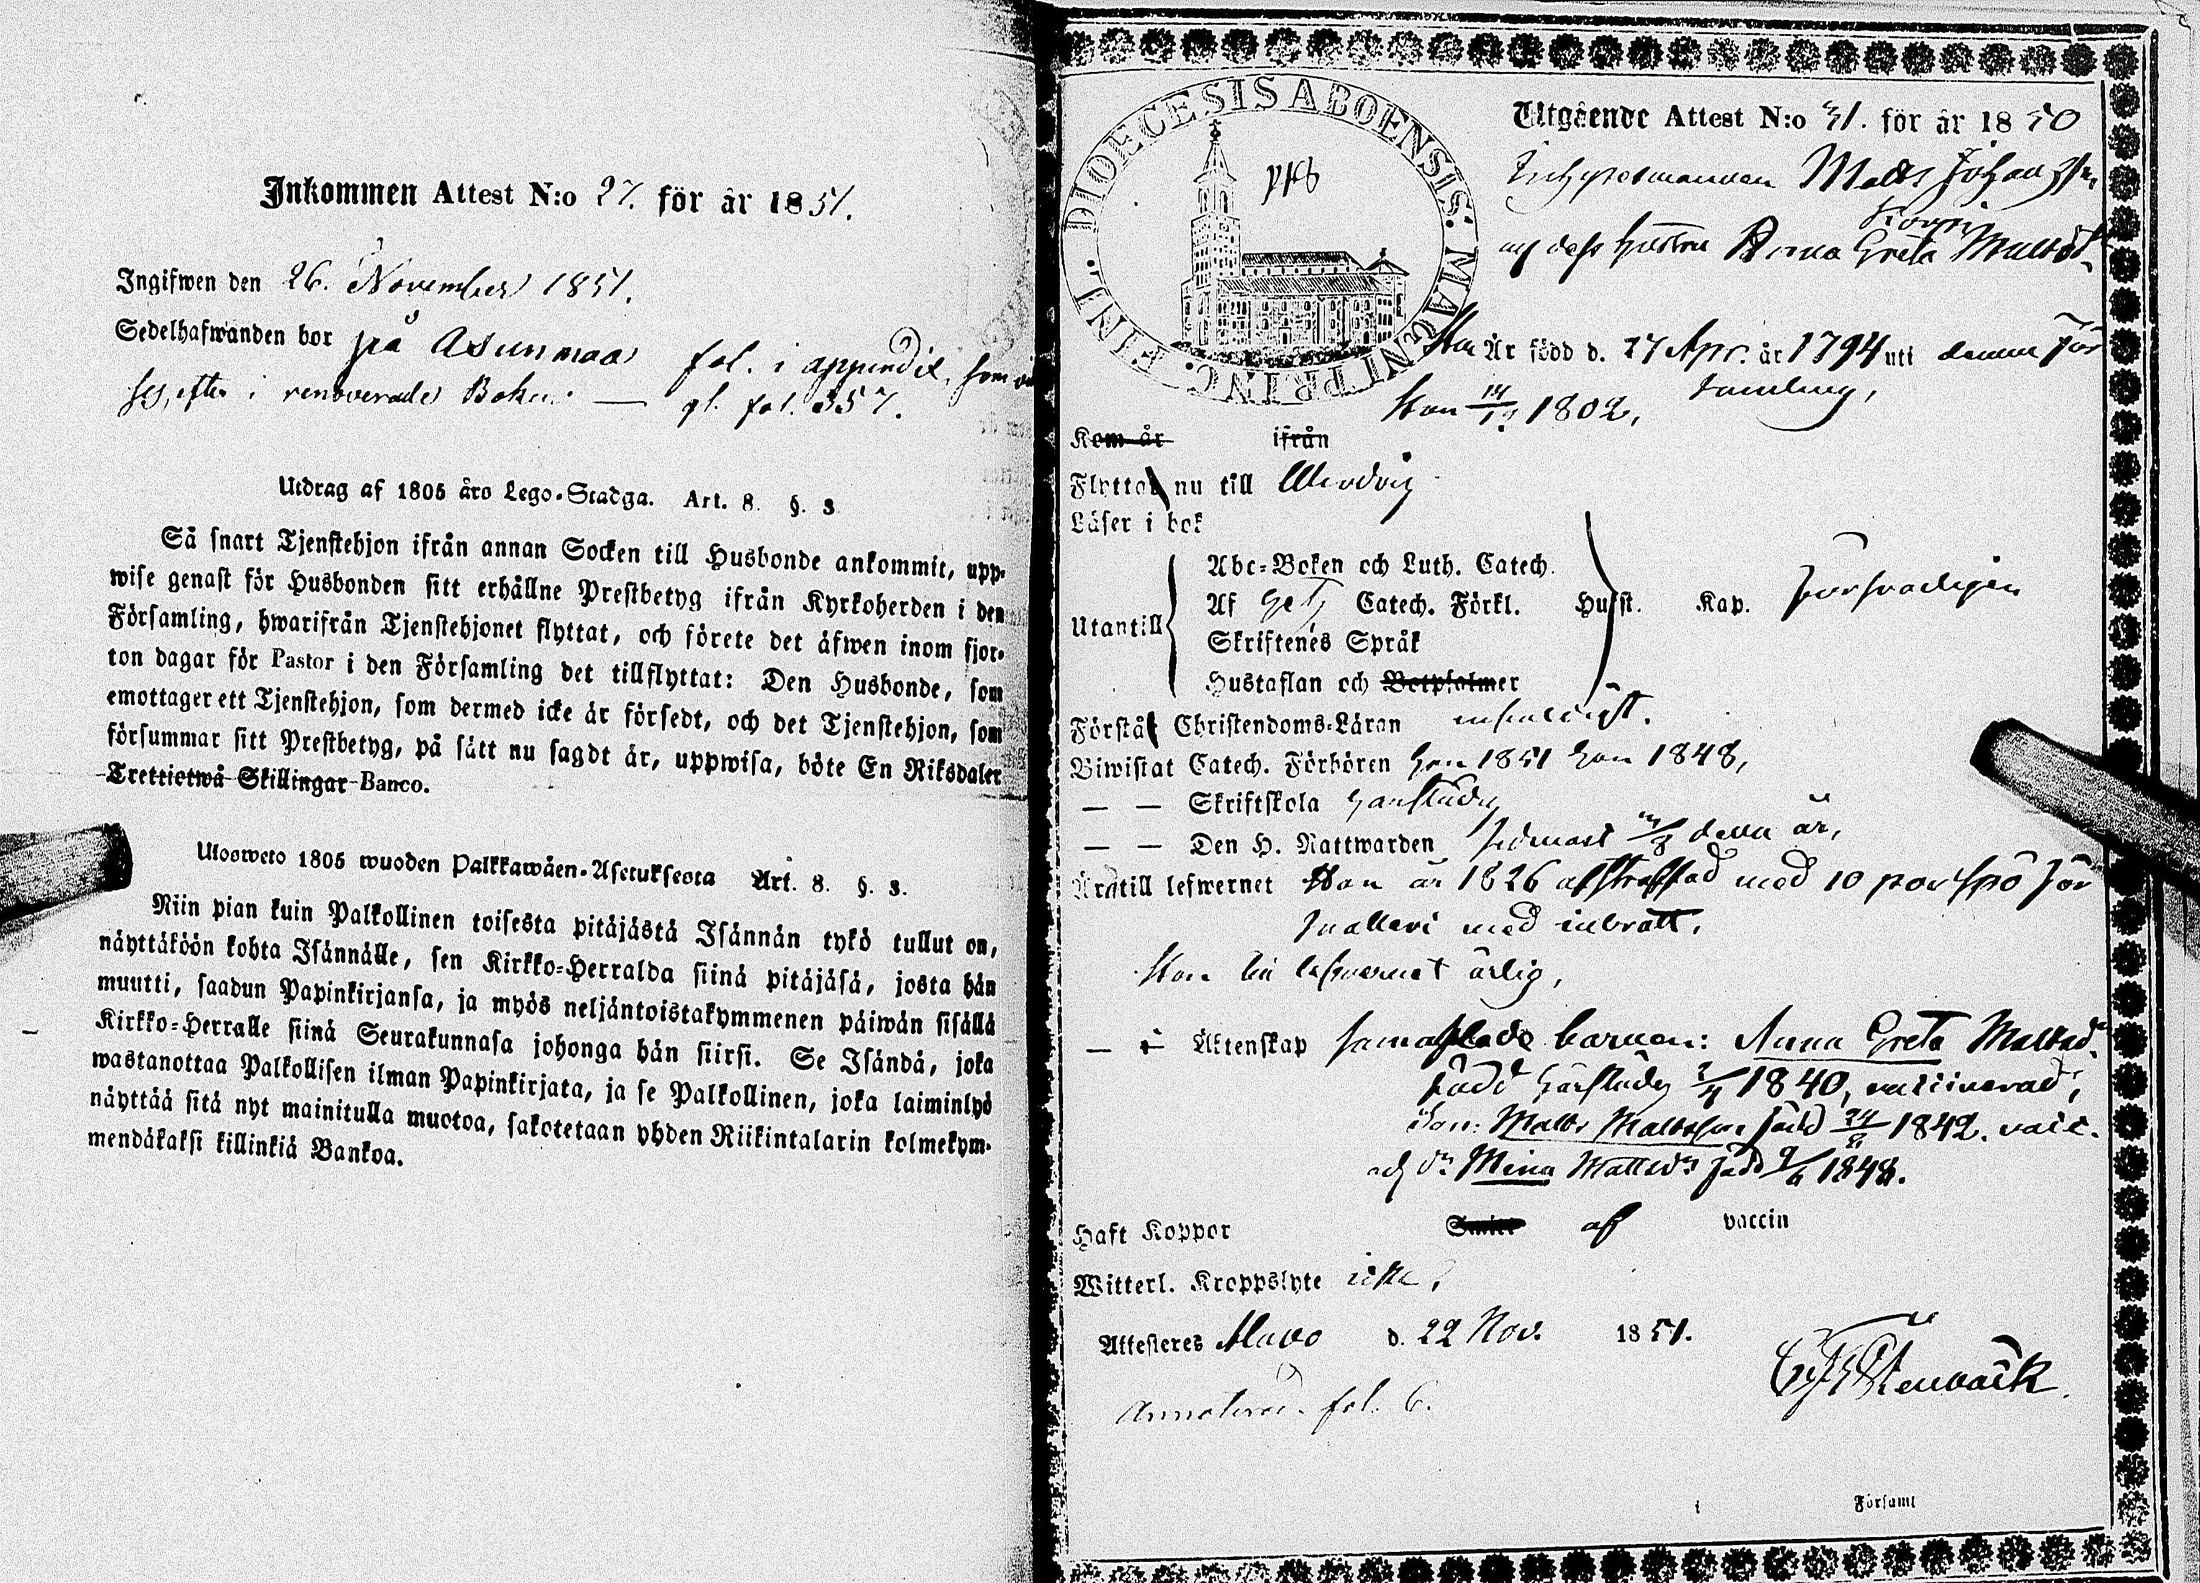 Inkommen Attest N:o 27. för år 1851.
Ingifwen den 26. November 1851.
Sedelhafwanden bor på Asunmaa fol. i appendix, som
efter i renoverade Boken — gl. fol. 357.
Utdrag af 1805 års Lego-Stadga. Art. 8. §. 3
Så snart Tjenstehjon ifrån annan Socken till Husbonde ankommit, upp-
wise genast för Husbonden sitt erhållne Prestbetyg ifrån Kyrkoherden i den
Församling, hwarifrån Tjenstehjonet flyttat, och förete det äfwen inom fjor-
ton dagar för Pastor i den Församling det tillflyttat: Den Husbonde, som
emottager ett Tjenstehjon, som dermed icke är försedt, och det Tjenstehjon, som
försummar sitt Prestbetyg, på sätt nu sagdt är, uppwisa, böte En Riksdaler
Trettiotwå Skillingar Banco.
Ulosweto 1805 wuoden Palkkawäen-Asetuksesta Art. 8. §. 3.
Niin pian kuin Palkollinen toisesta pitäjästä Isännän tykö tullut on,
näyttäköön kohta Isännälle, sen Kirkko-Herralda siinä pitäjäsä, josta hän
muutti, saadun Papinkirjansa, ja myös neljäntoistakymmenen päiwän sisällä
Kirkko-Herralle siinä Seurakunnasa johonga hän siirsi. Se Isändä, joka
wastanottaa Palkollisen ilman Papinkirjata, ja se Palkollinen, joka laiminlyö
näyttää sitä nyt mainitulla muotoa, sakotetaan yhden Riikintalarin kolmekym-
mendäkaksi killinkiä Bankoa.
DIOECESIS ABOENSIS. MAGNI PRINC. FINL.
Utgående Attest N:o 31. för år 1850
Matts Johansson
och dess hustru Anna Greta Mattsdr
Han Är född d. 17 Apr. år 1794 uti denna För
samling,
Hon 1802,
Kom år ifrån
Flyttat nu till
Läser i bok
Utantill
Abc-Boken och Luth. Catech.
Af Catech. Förkl. Hufst. Kap. försvarligen
Skriftenes Språk
Hustaflan och Botpsalmer
Förstår Christendoms-Läran enfaldigt.
Biwistat Catech. Förhören han 1851 hon 1848,
— — Skriftskola
— — Den H. Nattwarden sednast denna år,
Än till lefwernet Han är 1826 afstraffad med 10 par spö för
snatteri med inbrott.
Hon till lefvernet ärlig,
— i Äktenskap barnen: Anna Greta Mattsdr
född 1840, vaccinerad,
Son: Matts Mattsson född 24/8 1842. vacc.
och Dr Mina Mattsdr född 9/6 1848.
Haft Koppor Smitt af vaccin
Witterl. Kroppslyte icke,
Attesteres Alavo d. 22 Nov. 1851.
Stenbäck.
Annoterad fol. 6.
i Församl